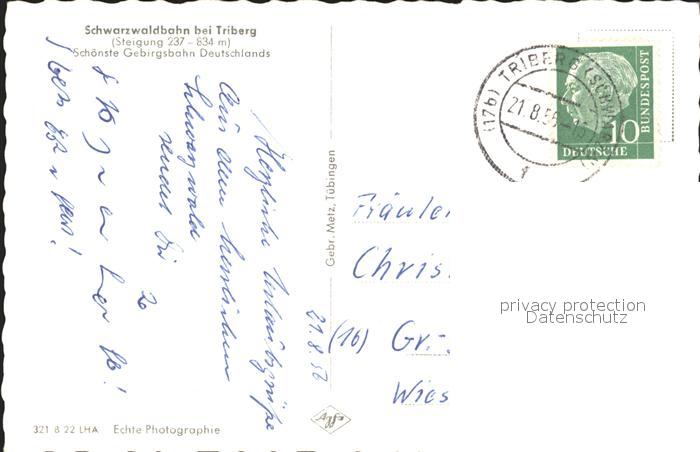 Schwarzwaldbahn bei Triberg
(Steigung 237 – 834 m)
Schönste Gebirgsbahn Deutschlands
Herzliche Urlaubsgrüße
Aus dem herrlichen
Schwarzwald
sendet Dir
21.8.56
Gebr. Metz, Tübingen
(17b) TRIBERG (SCHWARZW
21.8.56
1
10
DEUTSCHE
BUNDESPOST
Fräule
Chris
(16) Gr
Wies
privacy protection
Datenschutz
321 8 22 LHA Echte Photographie
Agfa